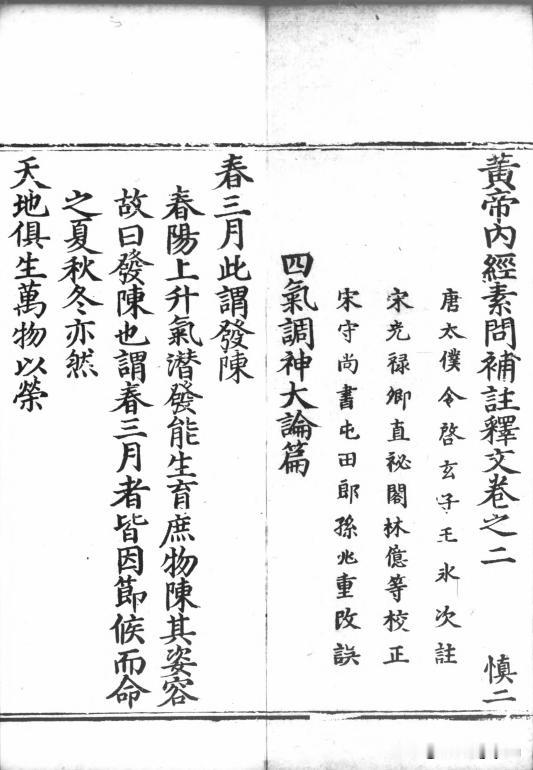 黃帝內經素問補註釋文卷之二 慎二
唐太僕令啓玄子王氷次註
宋光禄卿直祕閣林億等校正
宋守尚書屯田郎孫兆重改誤
四氣調神大論篇
春三月此謂發陳
春陽上升氣潜發能生育庶物陳其姿容
故曰發陳也謂春三月者皆因節候而命
之夏秋冬亦然
天地俱生萬物以榮